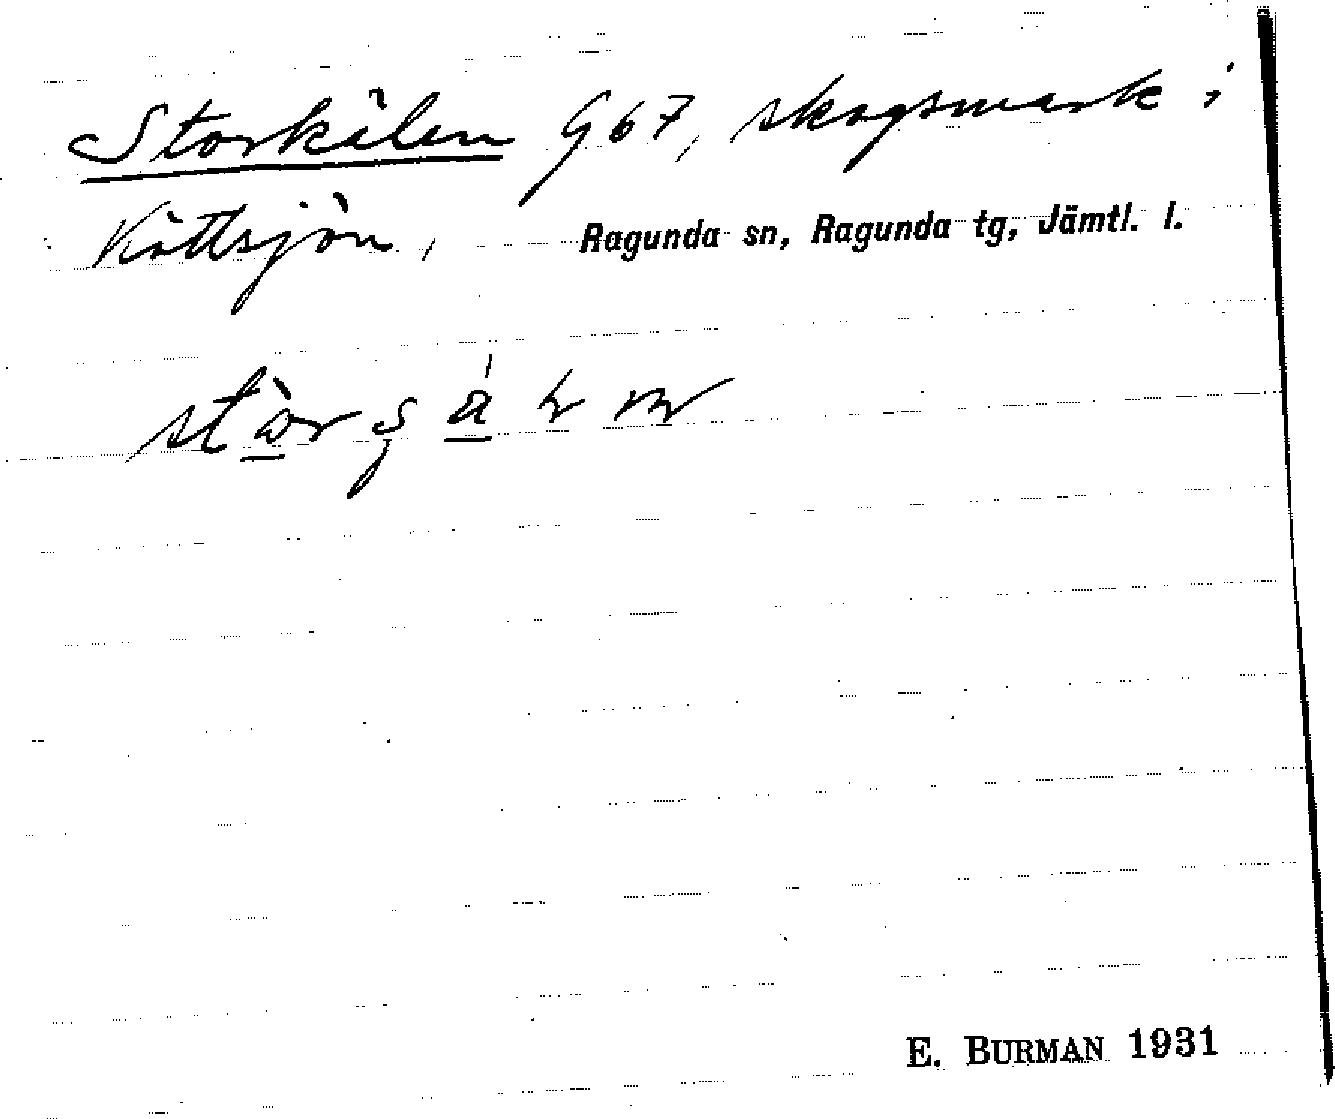 Storkälen G67, skogsmark i
Köttsjön, Ragunda sn, Ragunda tg, Jämtl. l.
E. BURMAN 1931